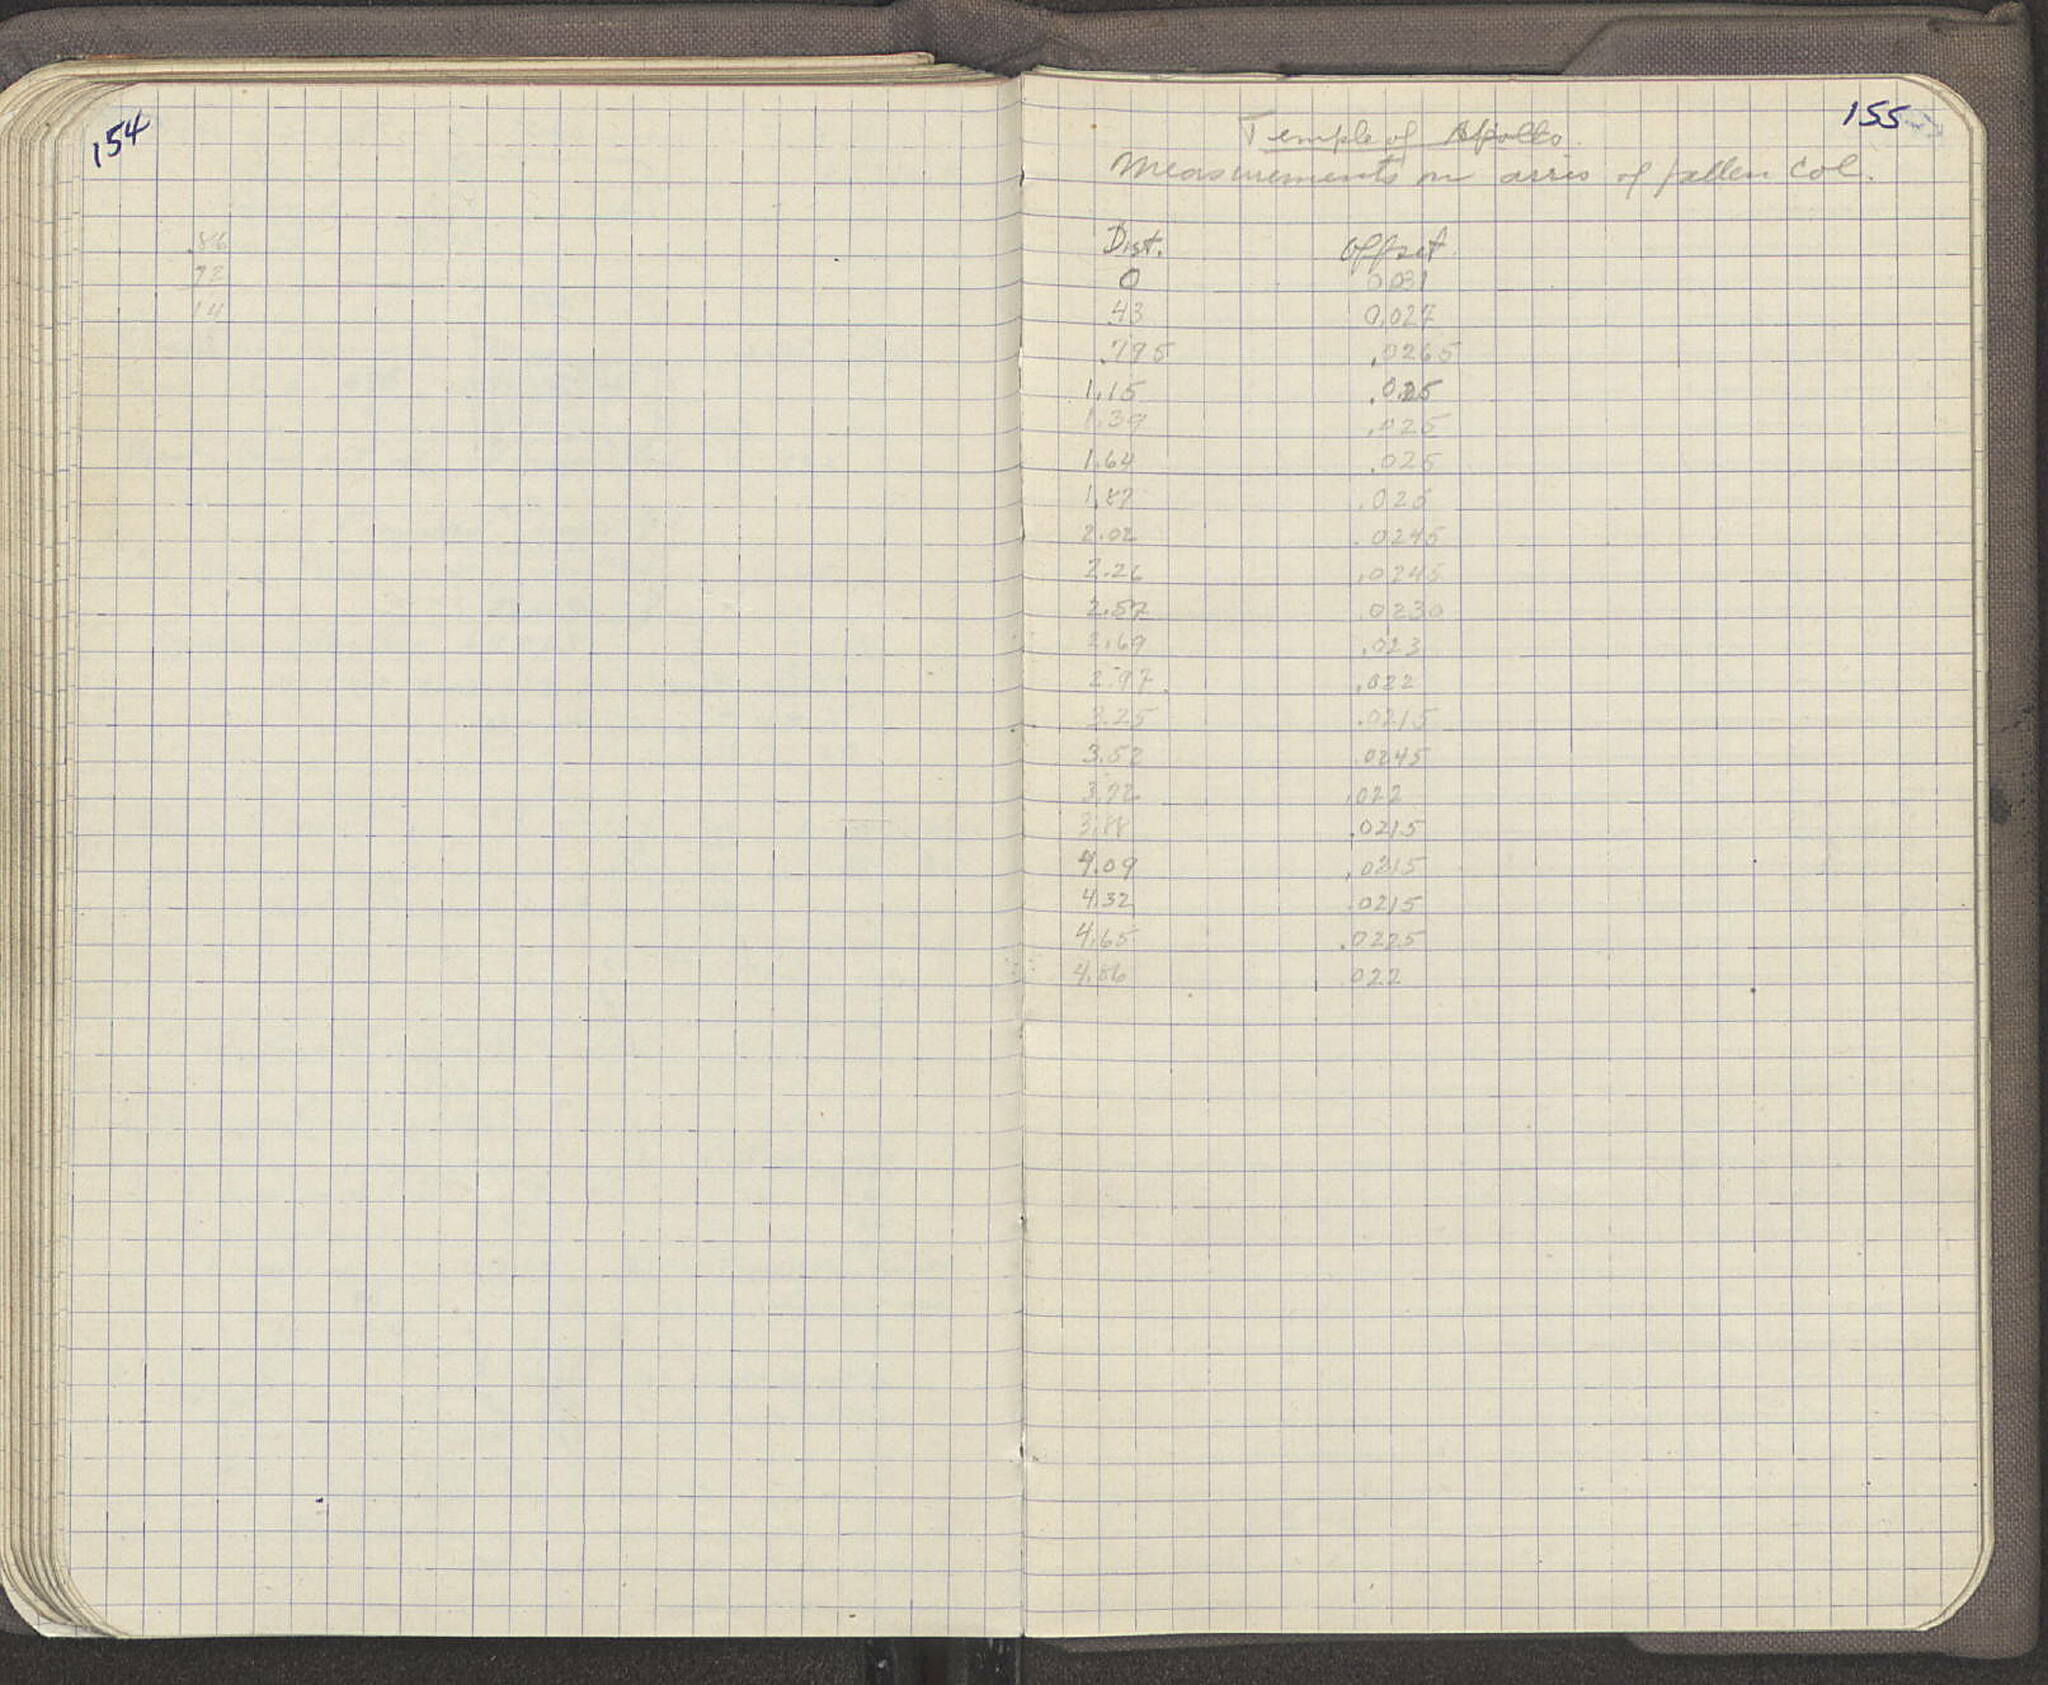 154
.86
72
14
155
Temple of Apollo.
Measurements on arris of fallen Col.
Dist. Offset.
0 0.031
.43 0.027
.795 .0265
1.15 .025
1.39 .025
1.64 .025
1.87 .025
2.02 .0245
2.26 .0245
2.57 .0230
2.69 .023
2.97 .022
3.25 .0215
3.52 .0245
3.72 .022
3.88 .0215
4.09 .0215
4.32 .0215
4.65 .0225
4.86 .022